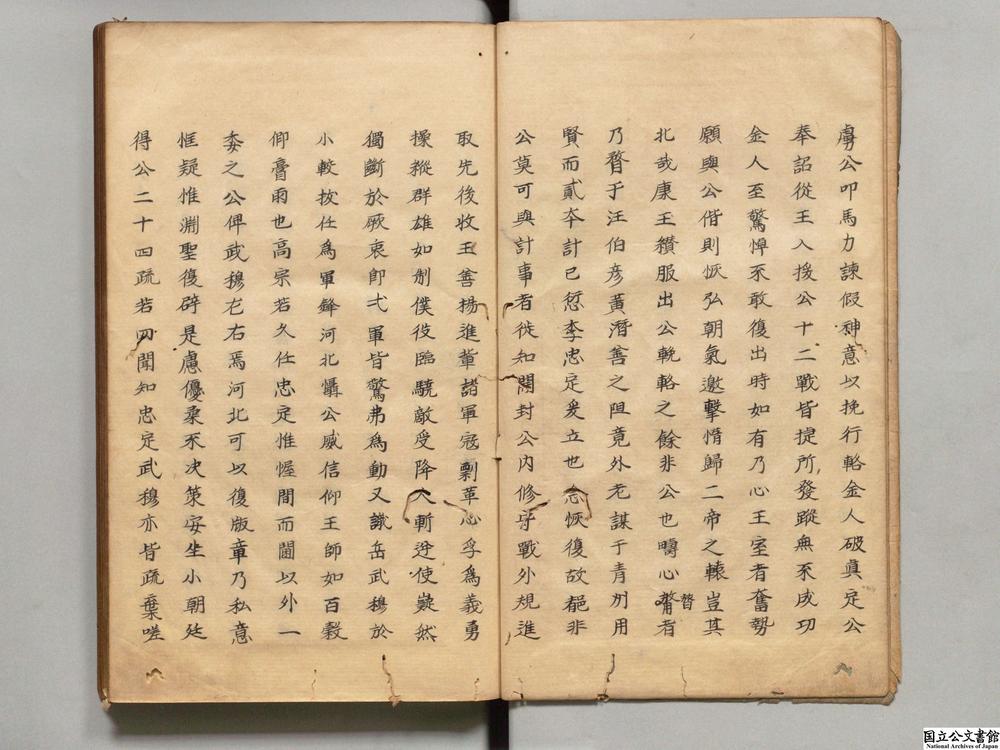 虜公叩馬力諫假神意以挽行輅金人破眞定公
奉詔從王入援公十二戰皆提所發蹤無不成功
金人至驚悼不敢復出時如有乃心王室者奮勢
願與公偕則恢弘朝氣邀擊惰歸二帝之轅豈其
北哉康王纘服出公輓輅之餘非公也疇心膂者
膂
乃瞀于汪伯彦黃潛善之阻竟外老謀于青州用
賢而貳本計已愆李忠定爰立也念恢復故都非
公莫可與計事者徙知開封公内修守戰外規進
取先後收王善楊進軰諸軍寇剽革心孚爲義勇
操縱群雄如制僕役臨驍敵受降人斬逆使嶷然
獨斷於厥衷即弋軍皆驚弗爲動又識岳武穆於
小較拔任爲軍鋒河北懾公威信仰王師如百穀
仰膏雨也高宗若久任忠定惟幄間而閫以外一
委之公俾武穆左右焉河北可以復版章乃私意
恇疑惟淵聖復辟是慮優柔不決策安坐小朝廷
得公二十四疏若罔聞知忠定武穆亦皆疏棄嗟
国立公文書館
National Archives of Japan